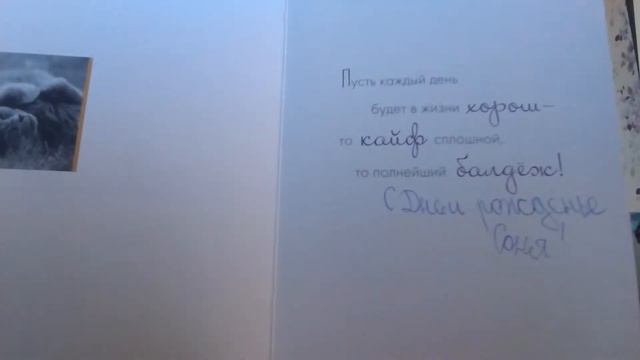 Пусть каждый день
будет в жизни хорош–
то кайф сплошной,
то полнейший балдёж!
С Днем рожденье
Соня!